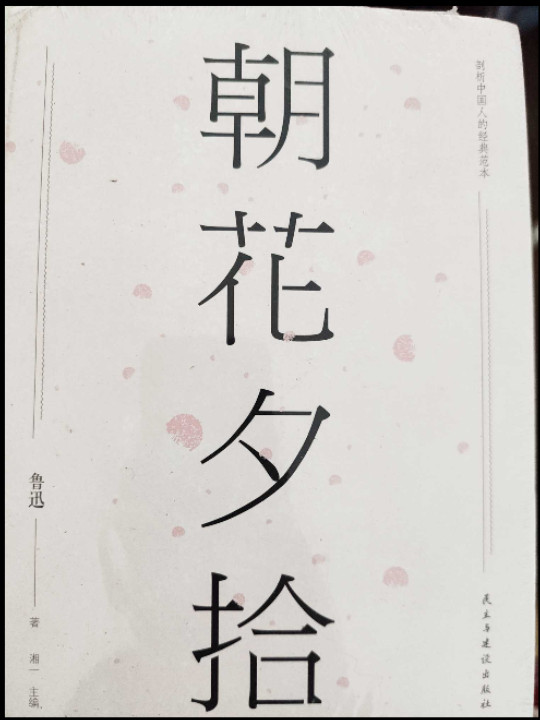 朝花夕拾
剖析中国人的经典范本
鲁迅
著
湘一 主编
民主与建设出版社